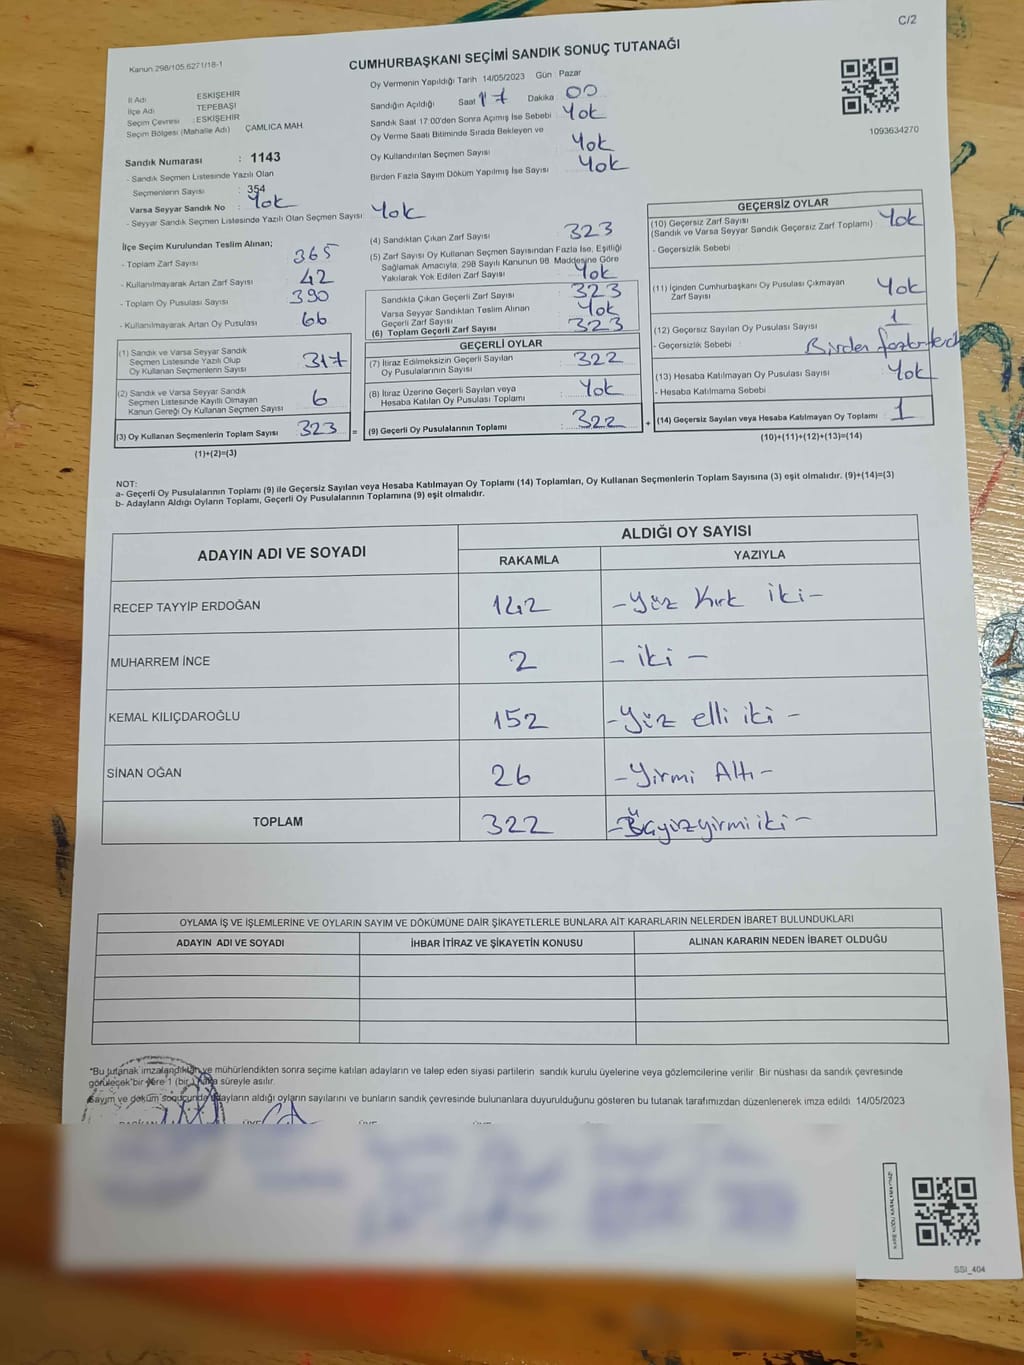 C/2
Kanun 298/105,6271/18-1
CUMHURBAŞKANI SEÇİMİ SANDIK SONUÇ TUTANAĞI
İl Adı ESKİŞEHİR
İlçe Adı TEPEBAŞI
Seçim Çevresi : ESKİŞEHİR
Seçim Bölgesi (Mahalle Adı) ÇAMLICA MAH.
Oy Vermenin Yapıldığı Tarih 14/05/2023 Gün Pazar
Sandığın Açıldığı Saat 17 Dakika 00
Sandık Saat 17:00'den Sonra Açılmış İse Sebebi : Yok
Oy Verme Saati Bitiminde Sırada Bekleyen ve
Oy Kullandırılan Seçmen Sayısı Yok
Birden Fazla Sayım Döküm Yapılmış İse Sayısı Yok
1093634270
Sandık Numarası : 1143
- Sandık Seçmen Listesinde Yazılı Olan
Seçmenlerin Sayısı : 354
Varsa Seyyar Sandık No : Yok
- Seyyar Sandık Seçmen Listesinde Yazılı Olan Seçmen Sayısı: Yok
İlçe Seçim Kurulundan Teslim Alınan;
- Toplam Zarf Sayısı 365
- Kullanılmayarak Artan Zarf Sayısı 42
- Toplam Oy Pusulası Sayısı 390
- Kullanılmayarak Artan Oy Pusulası 66
(1) Sandık ve Varsa Seyyar Sandık
Seçmen Listesinde Yazılı Olup
Oy Kullanan Seçmenlerin Sayısı : 317
(2) Sandık ve Varsa Seyyar Sandık
Seçmen Listesinde Kayıtlı Olmayan
Kanun Gereği Oy Kullanan Seçmen Sayısı : 6
(3) Oy Kullanan Seçmenlerin Toplam Sayısı 323 =
(1)+(2)=(3)
(4) Sandıktan Çıkan Zarf Sayısı : 323
(5) Zarf Sayısı Oy Kullanan Seçmen Sayısından Fazla İse, Eşitliği
Sağlamak Amacıyla, 298 Sayılı Kanunun 98. Maddesine Göre
Yakılarak Yok Edilen Zarf Sayısı : Yok
Sandıkla Çıkan Geçerli Zarf Sayısı : 323
Varsa Seyyar Sandıktan Teslim Alınan
Geçerli Zarf Sayısı : Yok
(6) Toplam Geçerli Zarf Sayısı : 323
GEÇERLİ OYLAR
(7) İtiraz Edilmeksizin Geçerli Sayılan
Oy Pusulalarının Sayısı : 322
(8) İtiraz Üzerine Geçerli Sayılan veya
Hesaba Katılan Oy Pusulası Toplamı : Yok
(9) Geçerli Oy Pusulalarının Toplamı : 322 +
GEÇERSİZ OYLAR
(10) Geçersiz Zarf Sayısı
(Sandık ve Varsa Seyyar Sandık Geçersiz Zarf Toplamı) : Yok
- Geçersizlik Sebebi :
(11) İçinden Cumhurbaşkanı Oy Pusulası Çıkmayan
Zarf Sayısı : Yok
(12) Geçersiz Sayılan Oy Pusulası Sayısı : 1
- Geçersizlik Sebebi : Birden fazla
(13) Hesaba Katılmayan Oy Pusulası Sayısı : Yok
- Hesaba Katılmama Sebebi :
(14) Geçersiz Sayılan veya Hesaba Katılmayan Oy Toplamı : 1
(10)+(11)+(12)+(13)=(14)
NOT:
a- Geçerli Oy Pusulalarının Toplamı (9) ile Geçersiz Sayılan veya Hesaba Katılmayan Oy Toplamı (14) Toplamları, Oy Kullanan Seçmenlerin Toplam Sayısına (3) eşit olmalıdır. (9)+(14)=(3)
b- Adayların Aldığı Oyların Toplamı, Geçerli Oy Pusulalarının Toplamına (9) eşit olmalıdır.
ADAYIN ADI VE SOYADI ALDIĞI OY SAYISI
RAKAMLA YAZIYLA
RECEP TAYYİP ERDOĞAN 142 -Yüz Kırk iki-
MUHARREM İNCE 2 - iki -
KEMAL KILIÇDAROĞLU 152 -Yüz elli iki -
SİNAN OĞAN 26 -Yirmi Altı-
TOPLAM 322 -Üçyüzyirmiiki-
OYLAMA İŞ VE İŞLEMLERİNE VE OYLARIN SAYIM VE DÖKÜMÜNE DAİR ŞİKAYETLERLE BUNLARA AİT KARARLARIN NELERDEN İBARET BULUNDUKLARI
ADAYIN ADI VE SOYADI İHBAR İTİRAZ VE ŞİKAYETİN KONUSU ALINAN KARARIN NEDEN İBARET OLDUĞU
"Bu tutanak imzalandıktan ve mühürlendikten sonra seçime katılan adayların ve talep eden siyasi partilerin sandık kurulu üyelerine veya gözlemcilerine verilir Bir nüshası da sandık çevresinde
görülecek bir yere 1 (bir) hafta süreyle asılır.
Sayım ve döküm sonucunda adayların aldığı oyların sayılarını ve bunların sandık çevresinde bulunanlara duyurulduğunu gösteren bu tutanak tarafımızdan düzenlenerek imza edildi 14/05/2023
SSI_404